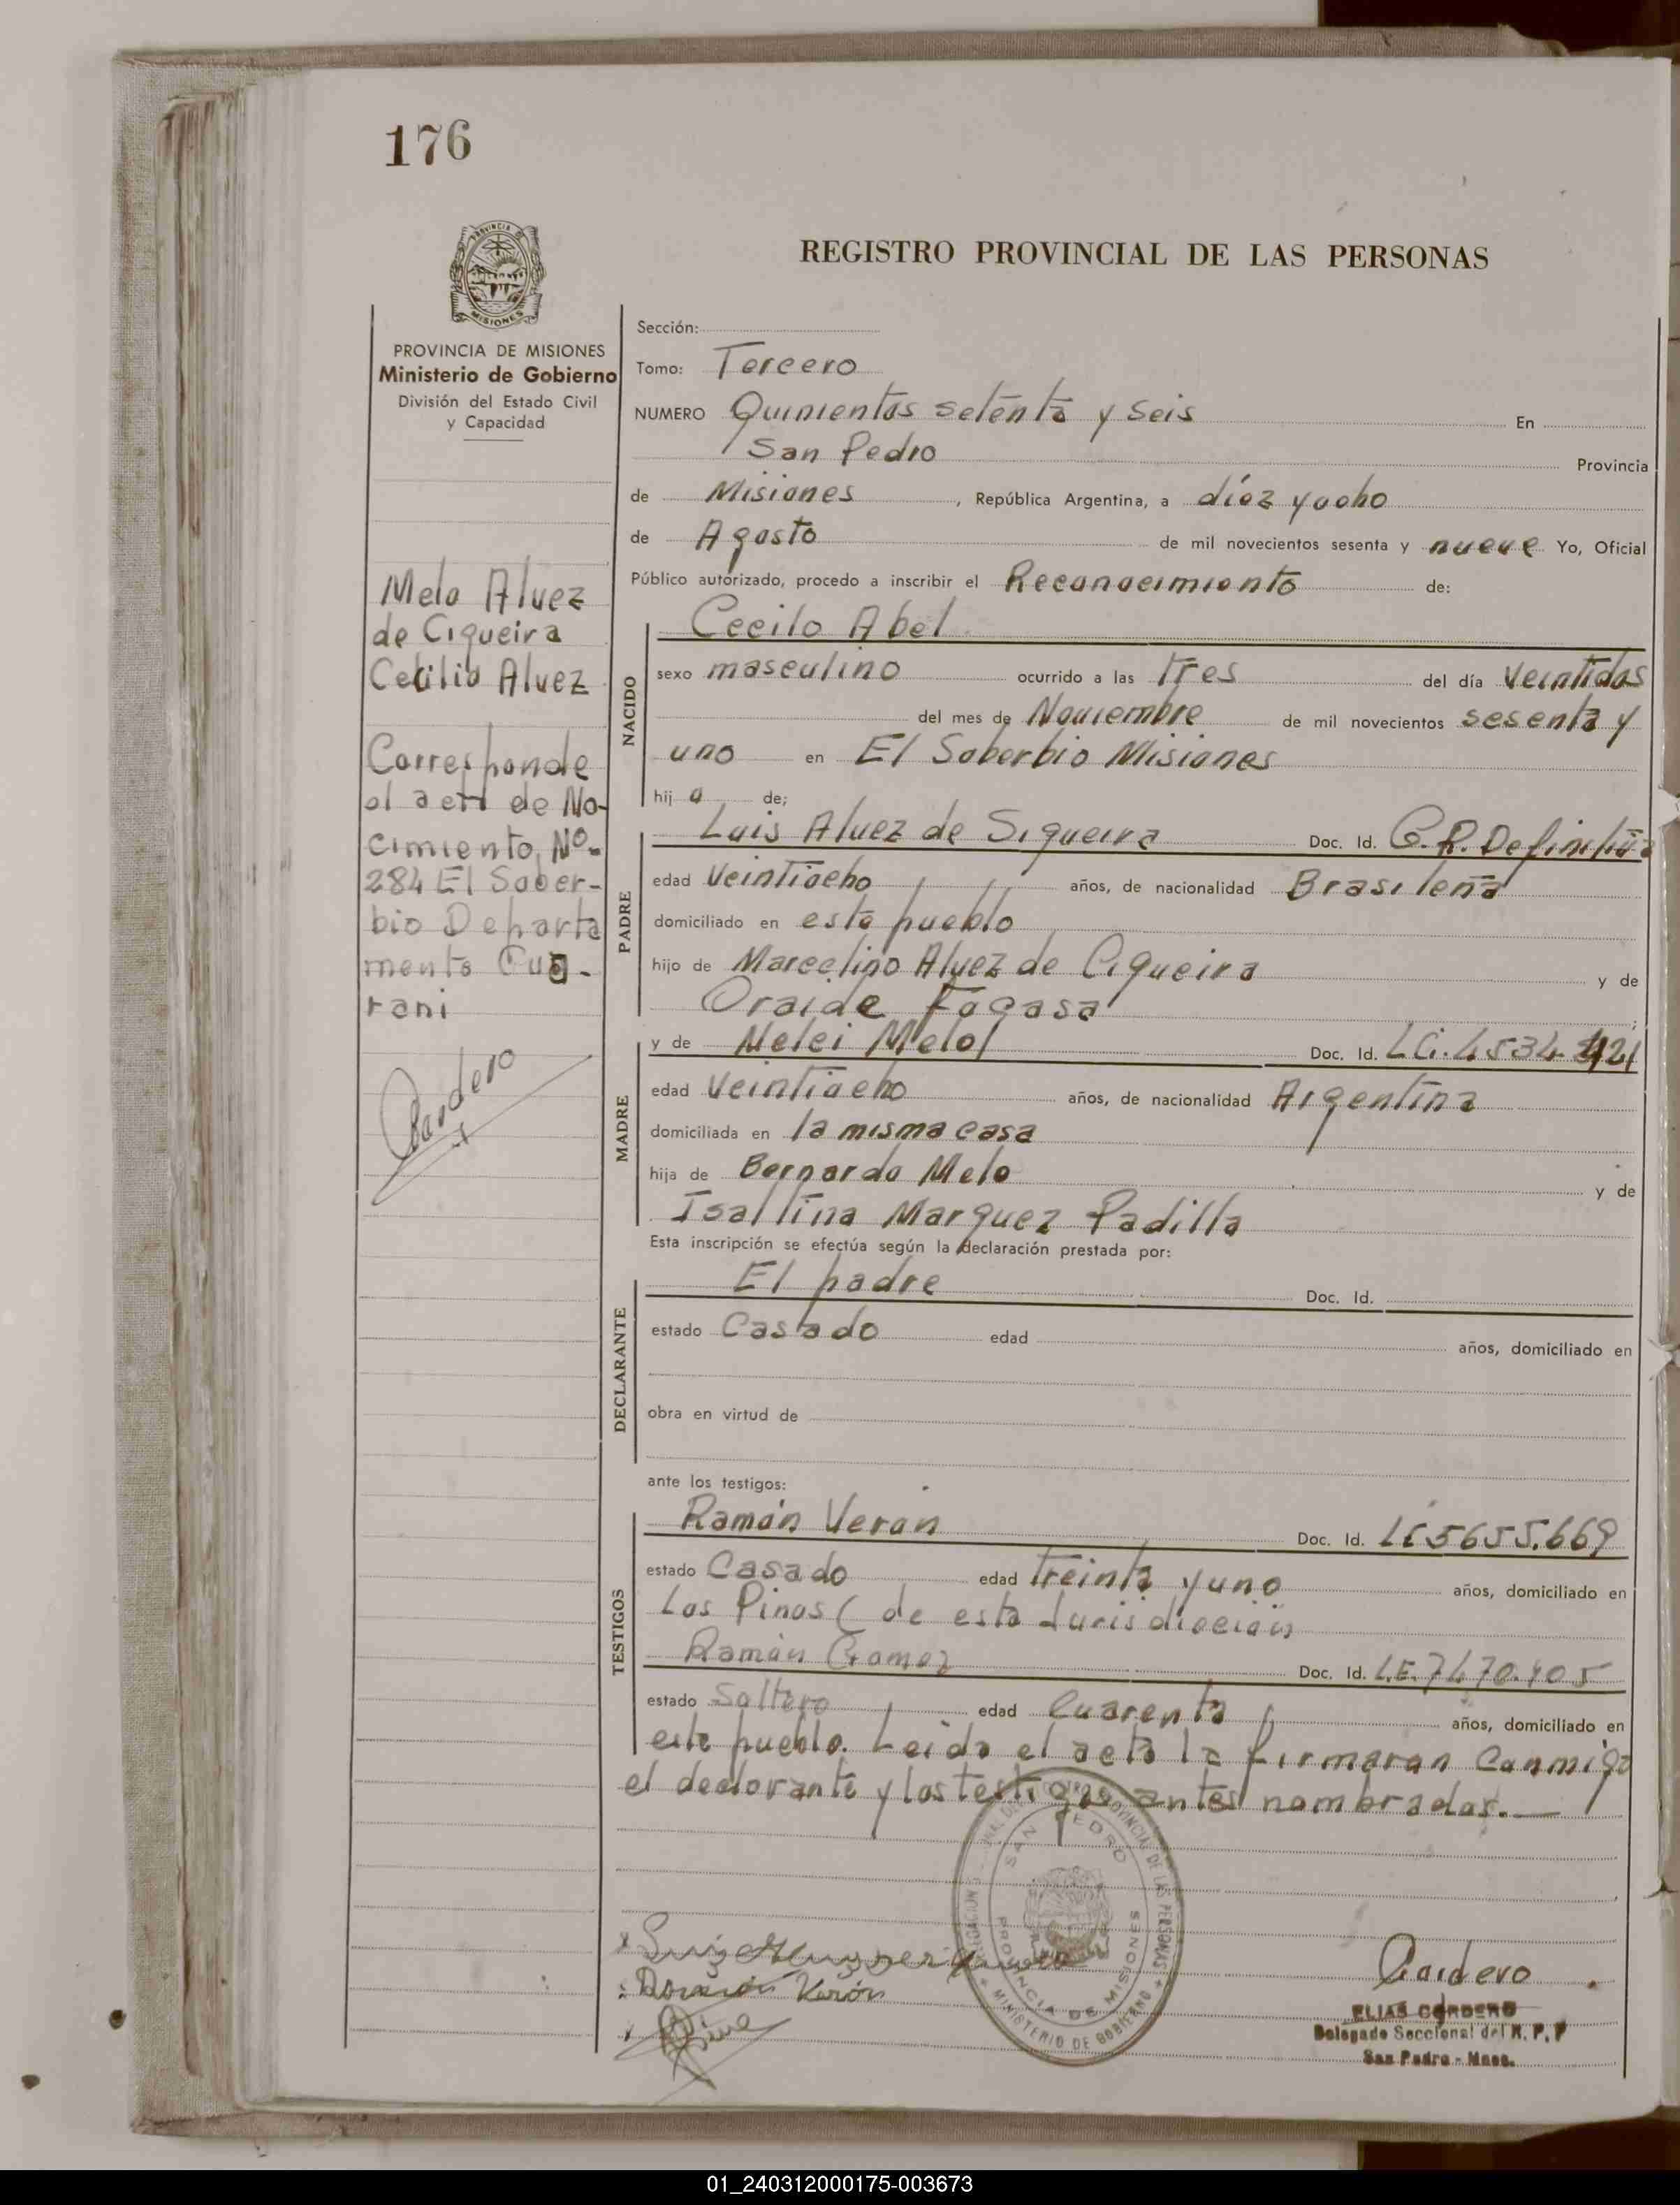 176
REGISTRO PROVINCIAL DE LAS PERSONAS
PROVINCIA DE MISIONES
Ministerio de Gobierno
División del Estado Civil
y Capacidad
Melo Alvez
de Ciqueira
Cecilio Alvez
Corresponde
al acta de Na-
cimiento, Nº-
284 El Sober-
bio Departa
mento Gua-
rani
Cordero
Sección:
Tomo: Tercero
NUMERO Quinientos setenta y seis En
San Pedro Provincia
de Misiones, República Argentina, a diez y ocho
de Agosto de mil novecientos sesenta y nueve Yo, Oficial
Público autorizado, procedo a inscribir el Reconocimiento de:
NACIDO
Cecilo Abel
sexo masculino ocurrido a las tres del día veintidos
del mes de Noviembre de mil novecientos sesenta y
uno en El Soberbio Misiones
hij o de;
PADRE
Luis Alvez de Siqueira Doc. Id. C.R. Definitiva
edad Veintiocho años, de nacionalidad Brasileña
domiciliado en este pueblo
hijo de Marcelino Alvez de Ciqueira y de
Oraide Fogasa
MADRE
y de Nelci Melo Doc. Id. LC. 4534 421
edad Veintiocho años, de nacionalidad Argentina
domiciliada en la misma casa
hija de Bernardo Melo y de
Isaltina Marquez Padilla
Esta inscripción se efectúa según la declaración prestada por:
DECLARANTE
El padre Doc. Id.
estado Casado edad años, domiciliado en
obra en virtud de
ante los testigos:
TESTIGOS
Ramón Veron Doc. Id. LE 5655.669
estado Casado edad treinta y uno años, domiciliado en
Los Pinos ( de esta Jurisdiccion
Ramón Gomez Doc. Id. L.E. 7470.405
estado Soltero edad Cuarenta años, domiciliado en
este pueblo. Leida el acta la firmaran conmigo
el declarante y los testigos antes nombrados.—
DELEGACION REGISTRO PROVINCIAL DE LAS PERSONAS
MINISTERIO DE GOBIERNO
SAN PEDRO
PROVINCIA DE MISIONES
Verón
Cordero
ELIAS CORDERO
Delegado Seccional del R. P. P
San Pedro - Mnes.
01_240312000175-003673